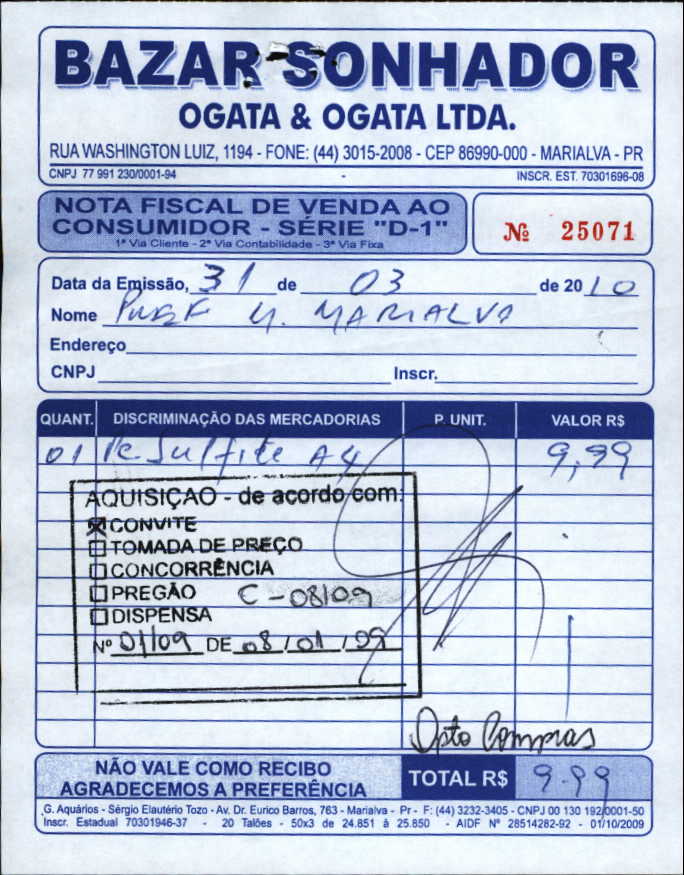 BAZAR SONHADOR
OGATA & OGATA LTDA.
RUA WASHINGTON LUIZ, 1194 - FONE: (44) 3015-2008 - CEP 86990-000 - MARIALVA - PR
CNPJ 77 991 230/0001-94 - INSCR. EST. 70301696-08
NOTA FISCAL DE VENDA AO
CONSUMIDOR - SÉRIE "D-1"
1ª Via Cliente - 2ª Via Contabilidade - 3ª Via Fixa
Nº 25071
Data da Emissão, 31 de 03 de 2010
Nome M. MARIALVA
Endereço
CNPJ Inscr.
QUANT. DISCRIMINAÇÃO DAS MERCADORIAS P. UNIT. VALOR R$
01 Sulfite A4 9,99
AQUISIÇÃO - de acordo com:
CONVITE
TOMADA DE PREÇO
CONCORRÊNCIA
PREGÃO C-08/09
DISPENSA
Nº 01/09 DE 08/01/09
Dpto Compras
NÃO VALE COMO RECIBO
AGRADECEMOS A PREFERÊNCIA
TOTAL R$ 9.99
G. Aquários - Sérgio Elautério Tozo - Av. Dr. Eurico Barros, 763 - Marialva - Pr - F: (44) 3232-3405 - CNPJ 00 130 192/0001-50
Inscr. Estadual 70301946-37 - 20 Talões - 50x3 de 24.851 à 25.850 - AIDF Nº 28514282-92 - 01/10/2009